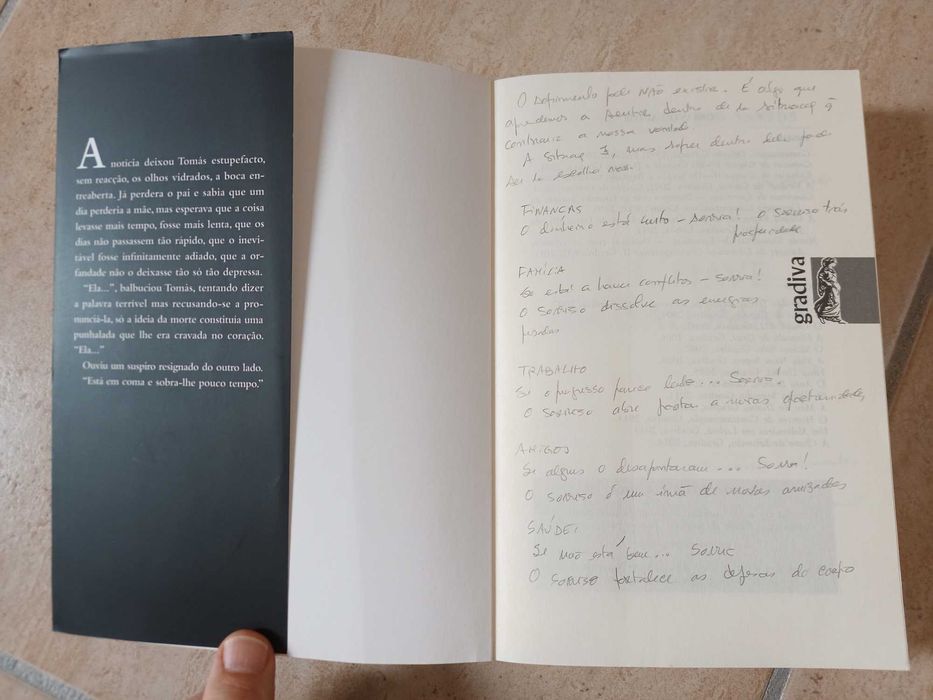 A notícia deixou Tomás estupefacto,
sem reacção, os olhos vidrados, a boca en-
treaberta. Já perdera o pai e sabia que um
dia perderia a mãe, mas esperava que a coisa
levasse mais tempo, fosse mais lenta, que os
dias não passassem tão rápido, que o inevi-
tável fosse infinitamente adiado, que a or-
fandade não o deixasse tão só tão depressa.
"Ela...", balbuciou Tomás, tentando dizer
a palavra terrível mas recusando-se a pro-
nunciá-la, só a ideia da morte constituía uma
punhalada que lhe era cravada no coração.
"Ela..."
Ouviu um suspiro resignado do outro lado.
"Está em coma e sobra-lhe pouco tempo."
O sofrimento pode NÃO existir. É algo que
aprendemos a sentir, dentro de
contraria a nossa vontade
A mas sofrer dentro dela pode
ser escolha nossa.
FINANÇAS
O dinheiro está curto - sorria! O sorriso trás
prosperidade
FAMÍLIA
Se está a haver conflitos - sorria!
O sorriso dissolve as energias
pesadas
TRABALHO
Se o progresso parece lento... Sorria!
O sorriso abre portas a novas oportunidades
AMIGOS
Se alguns o desapontaram... Sorria!
O sorriso é um imã de novas amizades
SAÚDE:
Se não está bem... Sorria
O sorriso fortalece as defesas do corpo
gradiva